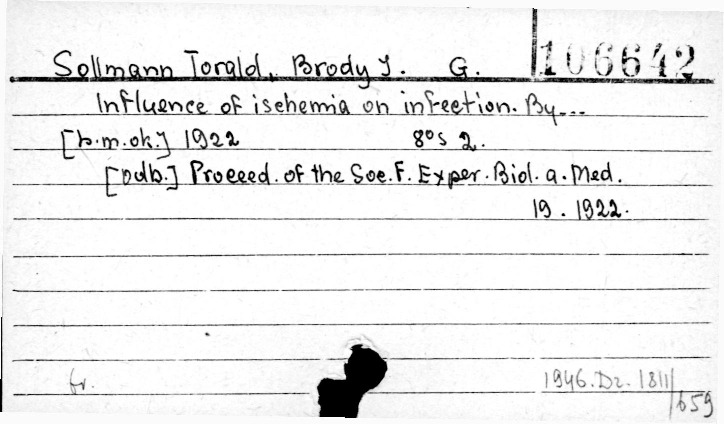 Sollmann Torald, Brody J. G. 106642
Influence of ischemia on infection. By...
[b.m.ok.] 1922 8°s 2.
[odb.] Proceed. of the Soc. f. Exper. Biol. a. Med.
19. 1922.
fr. 1946. Dz. 1811/
659